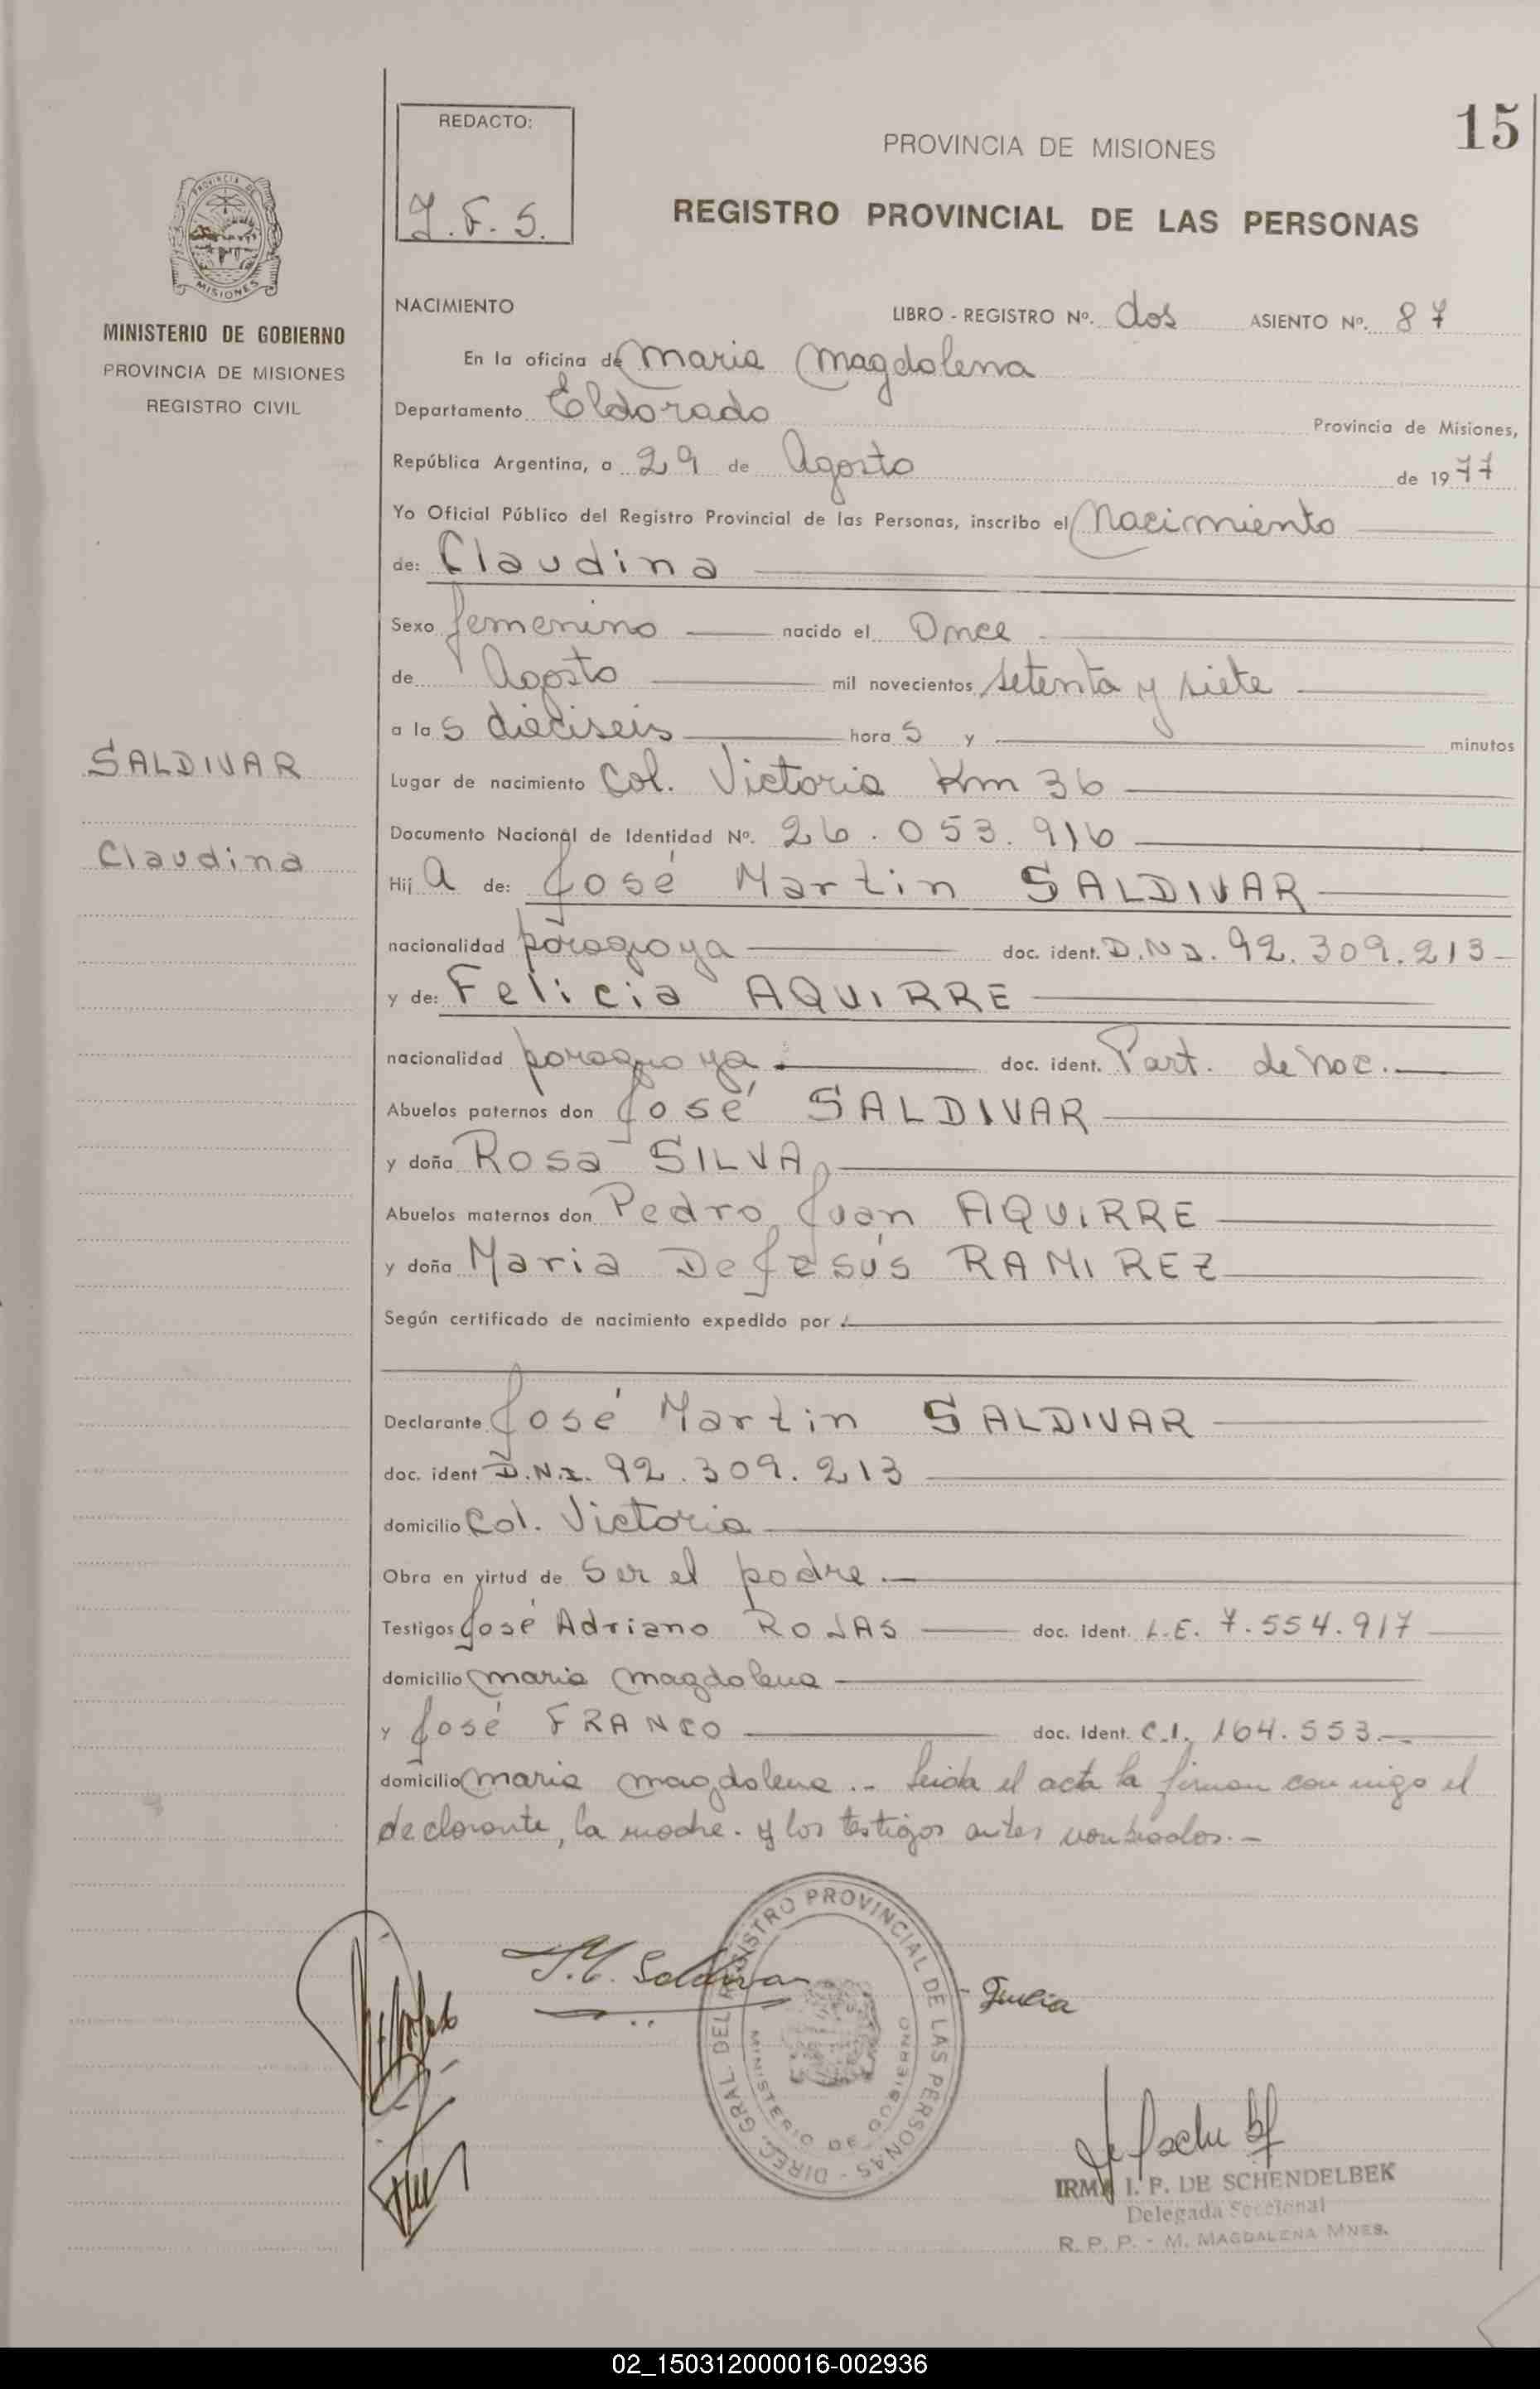 15
REDACTO:
J. F. S.
PROVINCIA DE MISIONES
REGISTRO PROVINCIAL DE LAS PERSONAS
PROVINCIA DE
MISIONES
MINISTERIO DE GOBIERNO
PROVINCIA DE MISIONES
REGISTRO CIVIL
SALDIVAR
Claudina
NACIMIENTO LIBRO - REGISTRO Nº. dos ASIENTO Nº. 87
En la oficina de Maria Magdalena
Departamento Eldorado Provincia de Misiones,
República Argentina, a 29 de Agosto de 1977
Yo Oficial Público del Registro Provincial de las Personas, inscribo el Nacimiento
de: Claudina
Sexo femenino nacido el Once
de Agosto mil novecientos setenta y siete
a las dieciseis horas y minutos
Lugar de nacimiento Col. Victoria Km 36
Documento Nacional de Identidad Nº. 26.053.916
Hija de: José Martin SALDIVAR
nacionalidad paraguaya doc. ident. D.N.I. 92.309.213
y de: Felicia AQUIRRE
nacionalidad paraguaya doc. ident. Part. de Nac.
Abuelos paternos don José SALDIVAR
y doña Rosa SILVA
Abuelos maternos don Pedro Juan AQUIRRE
y doña Maria De Jesús RAMIREZ
Según certificado de nacimiento expedido por
Declarante José Martin SALDIVAR
doc. ident D.N.I. 92.309.213
domicilio Col. Victoria
Obra en virtud de ser el padre.
Testigos José Adriano ROJAS doc. ident. L.E. 7.554.917
domicilio Maria Magdalena
y José FRANCO doc. ident. C.I. 164.553.
domicilio Maria Magdalena.- Leida el acta la firman conmigo el
declarante, la madre. y los testigos antes nombrados.-
J.M. Saldivar
DIREC. GRAL. DEL REGISTRO PROVINCIAL DE LAS PERSONAS -
MINISTERIO DE GOBIERNO
IRMA I. P. DE SCHENDELBEK
Delegada Seccional
R. P. P. - M. MAGDALENA MNES.
02_150312000016-002936